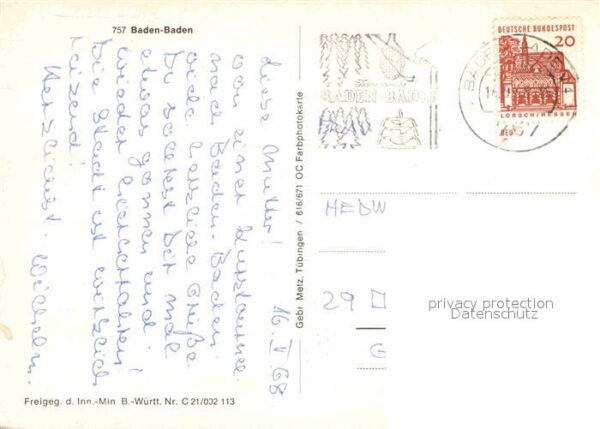 757 Baden-Baden
16. V. 68
Liebe Mutter!
Von einer
nach Baden-Baden
viele herzliche Grüße.
Du solltest Dir mal
etwas gönnen und
wieder
Die Stadt ist wirklich
reizend!
Herzlichst. Wilhelm.
Gebr. Metz, Tübingen / 616/671 OC Farbphotokarte
Freigeg. d. Inn.-Min B.-Württ. Nr. C 21/002 113
BADEN-BADEN
BADEN-BADEN
DEUTSCHE BUNDESPOST
20
LORSCH/HESSEN
HEDW
29
privacy protection
Datenschutz